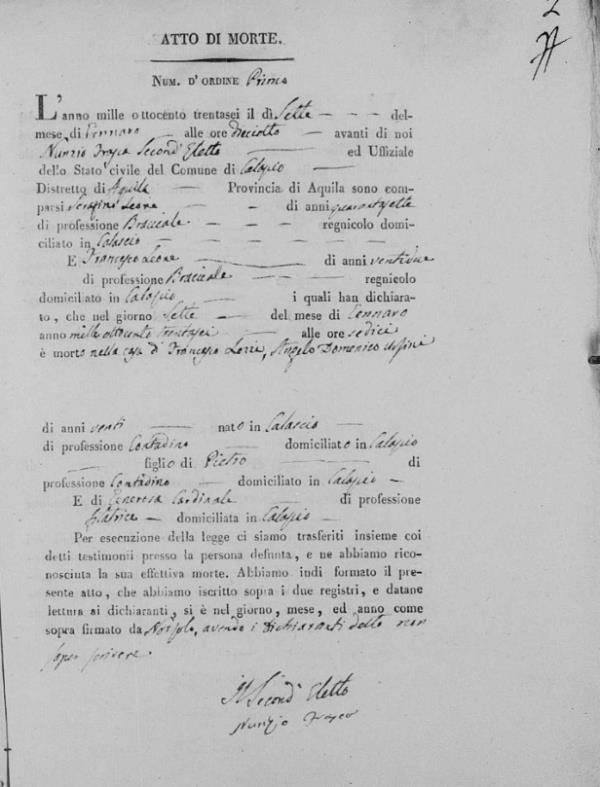 2
ATTO DI MORTE.
NUM. D'ORDINE Primo
L'anno mille ottocento trentasei il dì Sette — — — del
mese di Gennaro — alle ore dieciotto — avanti di noi
Nunzio Frasca Second' Eletto — ed Uffiziale
dello Stato civile del Comune di Calascio —
Distretto di Aquila — Provincia di Aquila sono com-
parsi Serafino Leone — — di anni quarantasette
di professione Bracciale — — — regnicolo domi-
ciliato in Calascio — — — — — — —
E Francesco Leone — di anni ventinove
di professione Bracciale — — — regnicolo
domiciliato in Calascio — — i quali han dichiara-
to, che nel giorno Sette — del mese di Gennaro
anno mille ottocento trentasei — alle ore sedici
è morto nella casa di Francesco, Angelo Domenico
di anni venti — nato in Calascio —
di professione Contadino — domiciliato in Calascio
— figlio di Pietro — di
professione Contadino — domiciliato in Calascio —
E di Cardinale — di professione
Filatrice — domiciliata in Calascio —
Per esecuzione della legge ci siamo trasferiti insieme coi
detti testimonii presso la persona defunta, e ne abbiamo rico-
nosciuta la sua effettiva morte. Abbiamo indi formato il pre-
sente atto, che abbiamo iscritto sopra i due registri, e datane
lettura ai dichiaranti, si è nel giorno, mese, ed anno come
sopra firmato da Noi solo, avendo i dichiaranti detto non
saper scrivere.
Il Second' Eletto
Nunzio Frasca